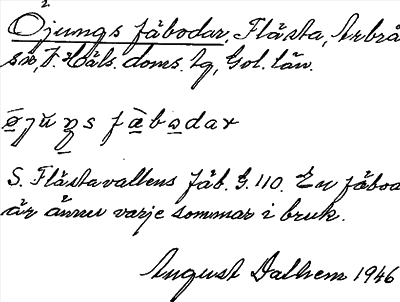 Öjungs fäbodar, Flästa, Arbrå
sn, V. Häls. doms. tg, Gol. län.
øjuŋs fäbodar
S. Flästavallens fäb. G. 110. En fäbod
är ännu varje sommar i bruk.
August Dalhem 1946